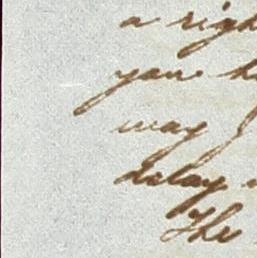 a righ
you h
way
delay
The